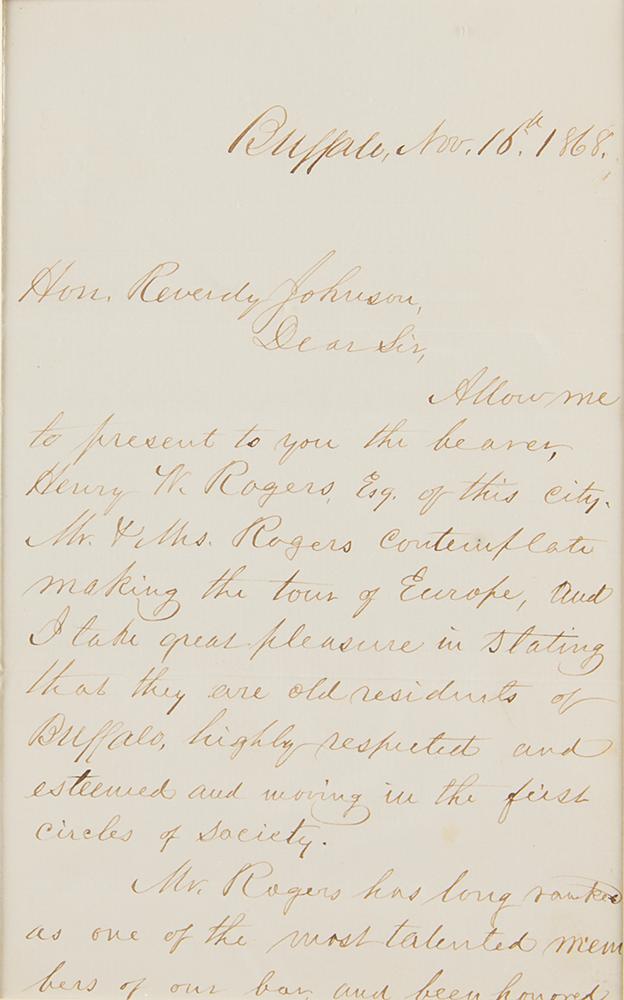 Buffalo, Nov. 16.th 1868.
Hon. Reverdy Johnson,
Dear Sir,
Allow me
to present to you the bearer,
Henry W. Rogers, Esq. of this city.
Mr. & Mrs. Rogers contemplate
making the tour of Europe, and
I take great pleasure in stating
that they are old residents of
Buffalo, highly respected and
esteemed and moving in the first
circles of society.
Mr. Rogers has long ranked
as one of the most talented mem
bers of our bar, and been honored